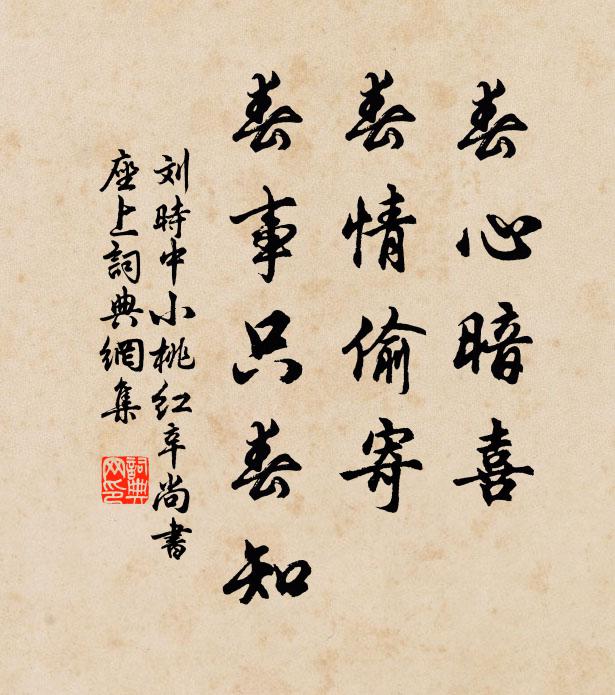 春心暗喜
春情偷寄
春事只春知
刘時中小桃红辛尚書
座上詞典網集
詞典网印